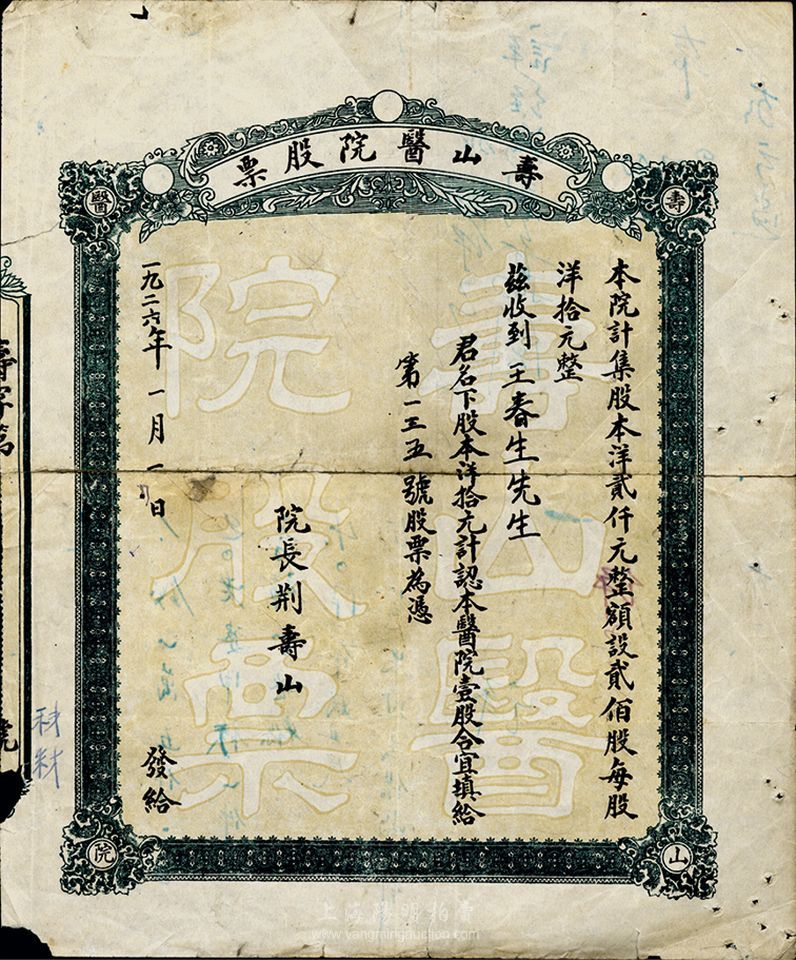 壽山醫院股票
壽
醫
山
院
本院計集股本洋貳仟元整額設貳佰股每股
洋拾元整
茲收到王春生先生
君名下股本洋拾元計認本醫院壹股合宜填給
第一三五號股票為憑
院長荆壽山
一九二六年一月一日
發給
壽山醫
院股票
壽字第
號
上海陽明拍賣
www.yangmingauction.com